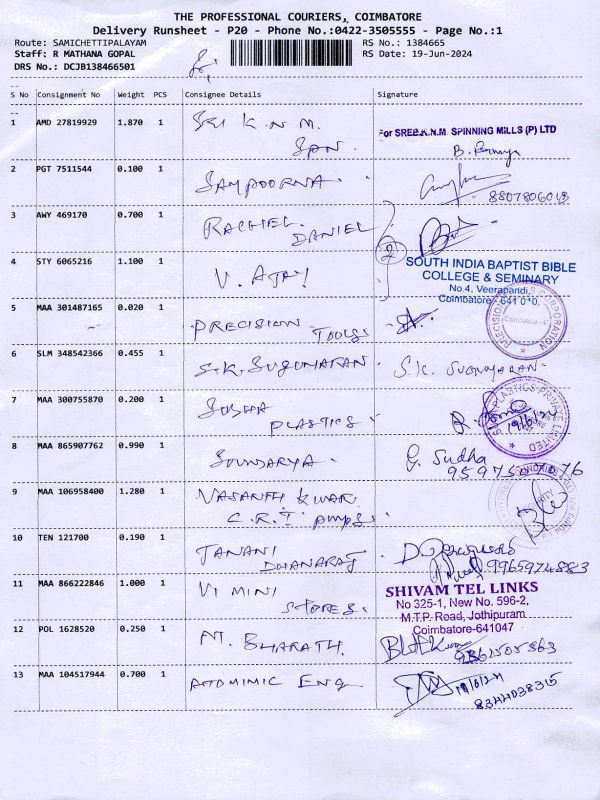 THE PROFESSIONAL COURIERS, COIMBATORE
Delivery Runsheet - P20 - Phone No.:0422-3505555 - Page No.:1
Route: SAMICHETTIPALAYAM
RS No.: 1384665
Staff: R MATHANA GOPAL
RS Date: 19-Jun-2024
DRS No.: DCJB138466501
S No Consignment No Weight PCS Consignee Details Signature
1 AMD 27819929 1.870 1 SRI K.N.M.
SPN.
For SREE.K.N.M. SPINNING MILLS (P) LTD
2 PGT 7511544 0.100 1 SAMPOORNA.
3 AWY 469170 0.700 1 RACHEL
DANIEL
2
4 STY 6065216 1.100 1 V. AJAY
SOUTH INDIA BAPTIST BIBLE
COLLEGE & SEMINARY
No.4, Veerapandi,
Coimbatore - 641 010.
5 MAA 301487165 0.020 1 PRECISION
TOOLS
6 SLM 348542366 0.455 1 S.K. SUGUMARAN. S.K. SUGUMARAN.
7 MAA 300755870 0.200 1 SUSHA
PLASTICS
19/6/24
8 MAA 865907762 0.990 1 SOUNDARYA. G. Sudha
9 MAA 106958400 1.280 1 VASANTH KUMAR
C.R.I PUMPS
10 TEN 121700 0.190 1 JANANI
DHANARAJ
9965974883
11 MAA 866222846 1.000 1 VI MINI
STORES.
SHIVAM TEL LINKS
No 325-1, New No. 596-2,
M.T.P. Road, Jothipuram
Coimbatore-641047
12 POL 1628520 0.250 1 M. BHARATH.
13 MAA 104517944 0.700 1 ATOMIMIC ENG
19/6/24
8344038315